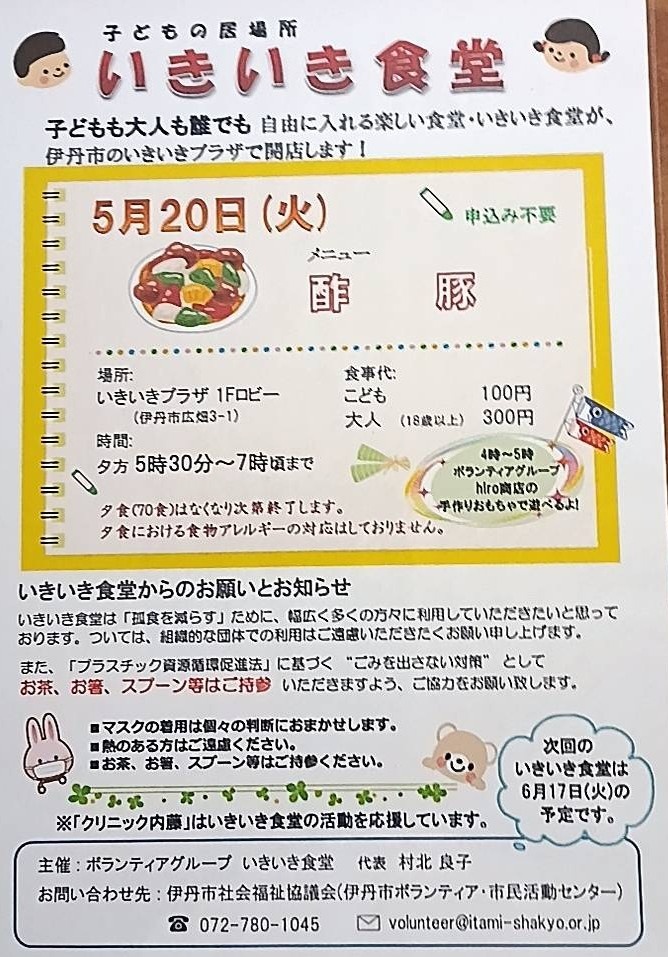 子どもの居場所
いきいき食堂
子どもも大人も誰でも 自由に入れる楽しい食堂・いきいき食堂が、
伊丹市のいきいきプラザで開店します！
5月20日(火)
申込み不要
メニュー
酢 豚
場所:
いきいきプラザ 1Fロビー
(伊丹市広畑3-1)
時間:
夕方 5時30分～7時頃まで
食事代:
こども 100円
大人 (18歳以上) 300円
4時～5時
ボランティアグループ
hiro商店の
手作りおもちゃで遊べるよ!
夕食(70食)はなくなり次第終了します。
夕食における食物アレルギーの対応はしておりません。
いきいき食堂からのお願いとお知らせ
いきいき食堂は「孤食を減らす」ために、幅広く多くの方々に利用していただきたいと思って
おります。ついては、組織的な団体での利用はご遠慮いただきたくお願い申し上げます。
また、「プラスチック資源循環促進法」に基づく “ごみを出さない対策” として
お茶、お箸、スプーン等はご持参 いただきますよう、ご協力をお願い致します。
■マスクの着用は個々の判断におまかせします。
■熱のある方はご遠慮ください。
■お茶、お箸、スプーン等はご持参ください。
次回の
いきいき食堂は
6月17日(火)の
予定です。
※「クリニック内藤」はいきいき食堂の活動を応援しています。
主催：ボランティアグループ いきいき食堂 代表 村北 良子
お問い合わせ先：伊丹市社会福祉協議会(伊丹市ボランティア・市民活動センター)
☎ 072-780-1045 ✉ volunteer@itami-shakyo.or.jp